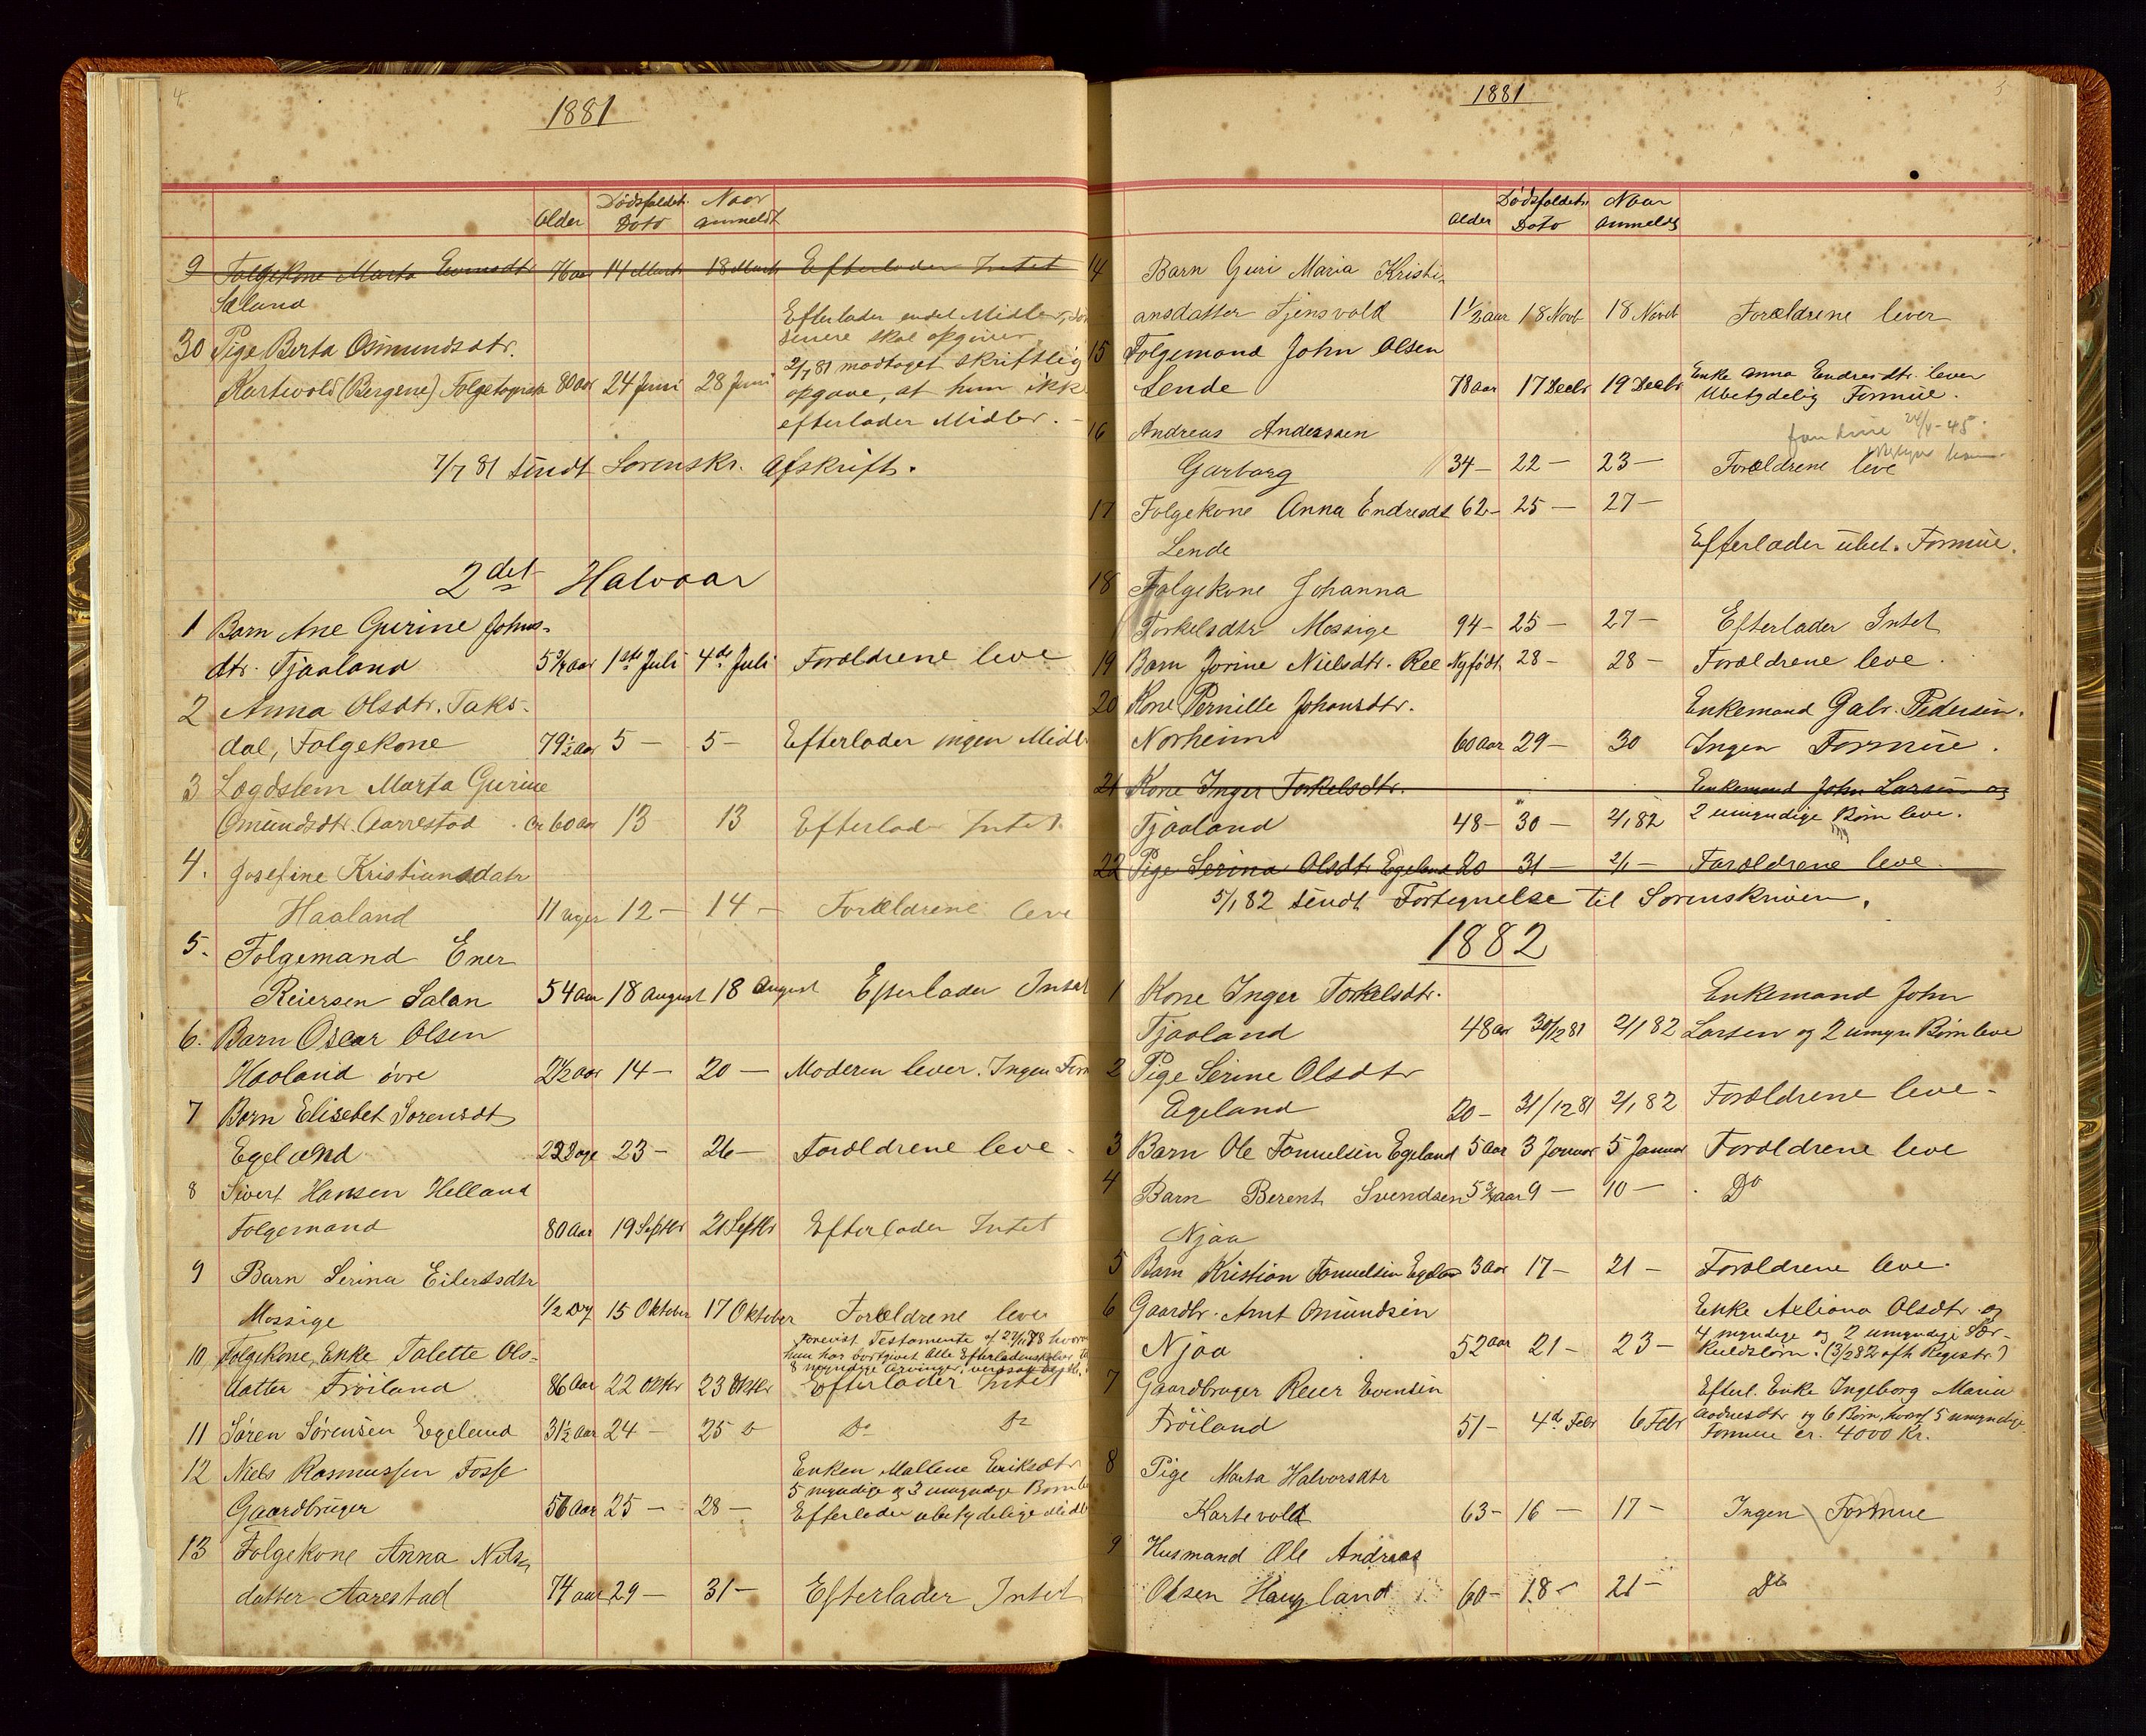 4
1881
Alder Dödsfaldets Dato Naar anmeldt
9 Folgekone Marta Evensdtr 76 aar 14 Marts 18 Marts Efterlader Intet
Sæland
Efterlader endel Midler, som
senere skal opgives
30 Pige Berta Osmundsdtr.
2/7 81 modtaget skriftlig
Kartevold (Bergene) 80 aar 24 Juni 28 Juni opgave, at hun ikke
efterlader Midler. -
7/7 81 sendt Sorenskr. Afskrift.
2det Halvaar
1 Barn Ane Gurine Johns-
dtr. Tjaaland 5 3/4 aar 1ste Juli 4de Juli Forældrene leve
2 Anna Olsdtr. Taks-
dal, Folgekone 79 1/2 aar 5 - 5 - Efterlader ingen Midl
3 Lægdslem Marta Gurine
Omundsdtr. Aarrestad ca 60 aar 13 13 Efterlader Intet
4. Josefine Kristiansdatr
Haaland 11 uger 12 - 14 - Forældrene leve
5. Folgemand Ener
Reiersen Salan 54 aar 18 August 18 August Efterlader Intet
6. Barn Oscar Olsen
Haaland övre 2 1/2 aar 14 - 20 - Moderen lever. Ingen Form
7 Barn Elisebet Sorensdt
Egeland 22 Dage 23 - 26 - Forældrene leve.
8 Sivert Hansen Helland
Folgemand 80 Aar 19 Septbr 21 Septbr Efterlader Intet
9 Barn Serina Eilertsdtr
Mossige 1/2 Dag 15 Oktober 17 Oktober Forældrene leve
Forevist Testamente af
hun har bortgivet alle Efterladenskaber til
8 myndige arvinger,
10 Folgekone, Enke Talette Ols-
datter Fröiland 86 Aar 22 Oktbr 23 Oktbr Efterlader Intet
11 Sören Sörensen Egeland 31 1/2 Aar 24 - 25 - Do Do
12 Niels Rasmussen Fosse Enken Mallene Eriksdtr
5 myndige og 3 umyndige Børn
Gaardbruger 56 Aar 25 - 28 - Efterlader ubetydelige Midl
13 Folgekone Anna Nils-
datter Aarestad 74 aar 29 - 31 - Efterlader Intet
1881
Alder Dödsfaldets Dato Naar anmeldt
14 Barn Guri Maria Kristi-
ansdatter Tjensvold 1 1/2 aar 18 Novb 18 Novb Forældrene lever
15 Folgemand John Olsen
Lende 78 aar 17 Decbr 19 Decbr Enke Anna Endresdtr. lever
Ubetydelig Formue.
16 Andreas Anderssen
24/4-45
Garborg 34 - 22 - 23 - Forældrene leve
17 Folgekone Anna Endresdt 62 - 25 - 27 -
Lende Efterlader ubet. Formue.
18 Folgekone Johanna
Torkelsdtr Mossige 94 - 25 - 27 - Efterlader Intet
19 Barn Jorine Nielsdtr. Ree Nyfödt 28 - 28 - Forældrene leve.
20 Kone Pernille Johansdtr. Enkemand Gabr. Pedersen.
Norheim 60 Aar 29 - 30 Ingen Formue.
21 Kone Inger Torkelsdtr. Enkemand John Larsen og
Tjaaland 48 - 30 - 2/1 82 2 umyndige Børn leve.
22 Pige Serina Olsdtr Egeland 20 31 - 2/1 - Forældrene leve.
5/1 82 sendt Fortegnelse til Sorenskriven.
1882
1 Kone Inger Torkelsdtr. Enkemand John
Tjaaland 48 aar 30/12 81 2/1 82 Larsen og 2 umyn Børn leve
2 Pige Serine Olsdtr
Egeland 20 - 31/12 81 2/1 82 Forældrene leve -
3 Barn Ole Tonnelsen Egeland 5 aar 3 Januar 5 Januar Forældrene leve
4 Barn Berent Svendsen 5 3/4 aar 9 - 10 - Do
Njaa
5 Barn Kristian Tonnelsen Egeland 3 aar 17 - 21 - Forældrene leve.
6 Gaardbr. Arnt Omundsen Enke Axliana Olsdtr. og
Njaa 52 aar 21 - 23 - 4 myndige og 2 umyndige Sær-
kuldsbørn. (3/2 82 Registr.)
7 Gaardbruger Reier Evensen Efterl. Enke Ingeborg Marie
Fröiland 51 - 4de Febr 6 Febr Andresdtr og 6 Børn, hvoraf 5 umyndige
Formue ca. 4000 Kr.
8 Pige Marta Halvorsdtr
Kartevold 63 - 16 - 17 - Ingen Formue
9 Husmand Ole Andreas
Olsen Haugland 60 - 18 - 21 - Do